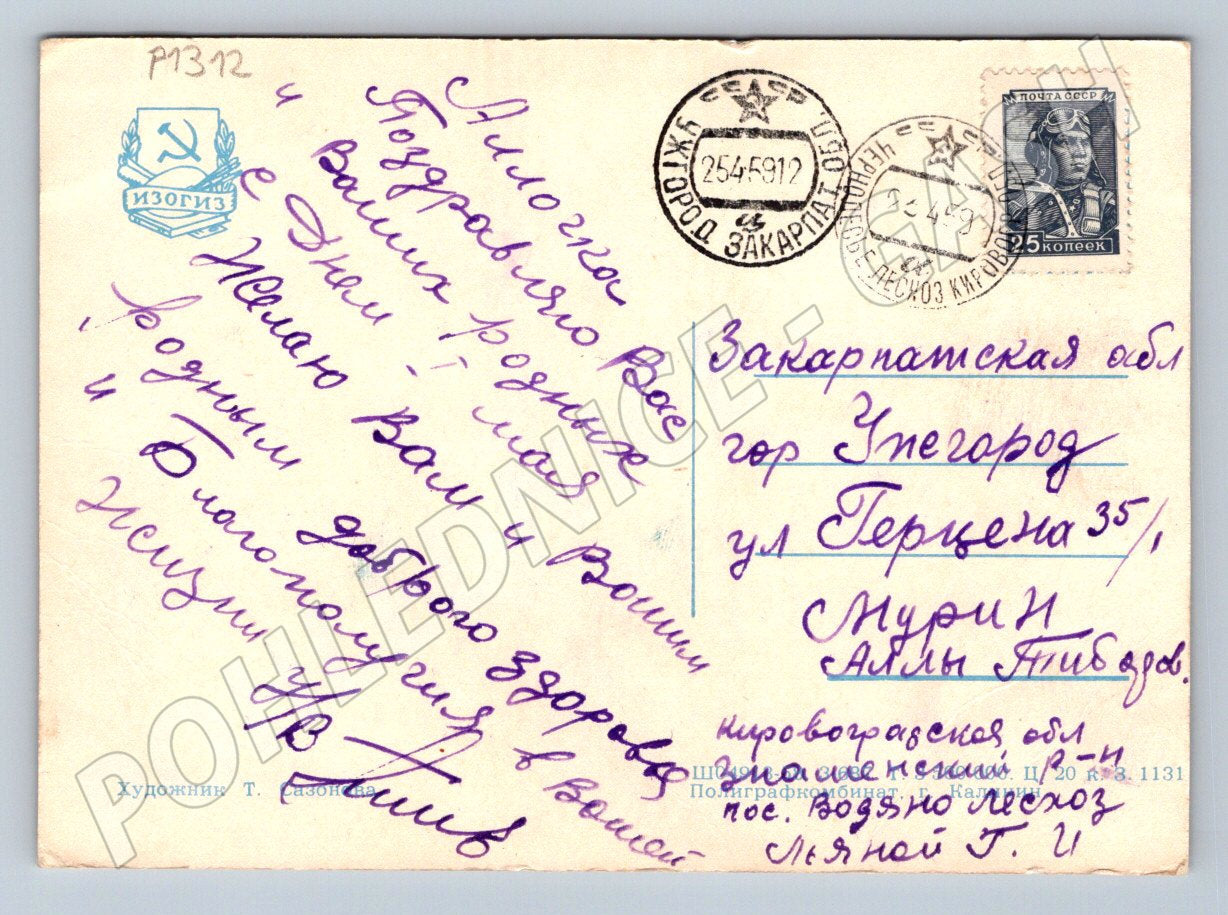 P1312
ИЗОГИЗ
Аллочка
Поздравляю Вас
и Ваших родных
с Днем 1 мая
Желаю Вам и Вашим
родным доброго здоровья
и благополучия в Вашей
жизни
СССР
УЖГОРОД ЗАКАРПАТ. ОБЛ.
2545912
и
ПОЧТА СССР
25 КОПЕЕК
Закарпатская обл
гор Ужгород
ул Герцена 35/1
Мурин
Аллы Тибадов.
Кировоградская обл
Знаменский р-н
пос. Водяно Лесхоз
Г. И
Художник Т. Сазонова
Ц. 20 к. З. 1131
Полиграфкомбинат, г. Калинин
POHLEDNICE - CASH